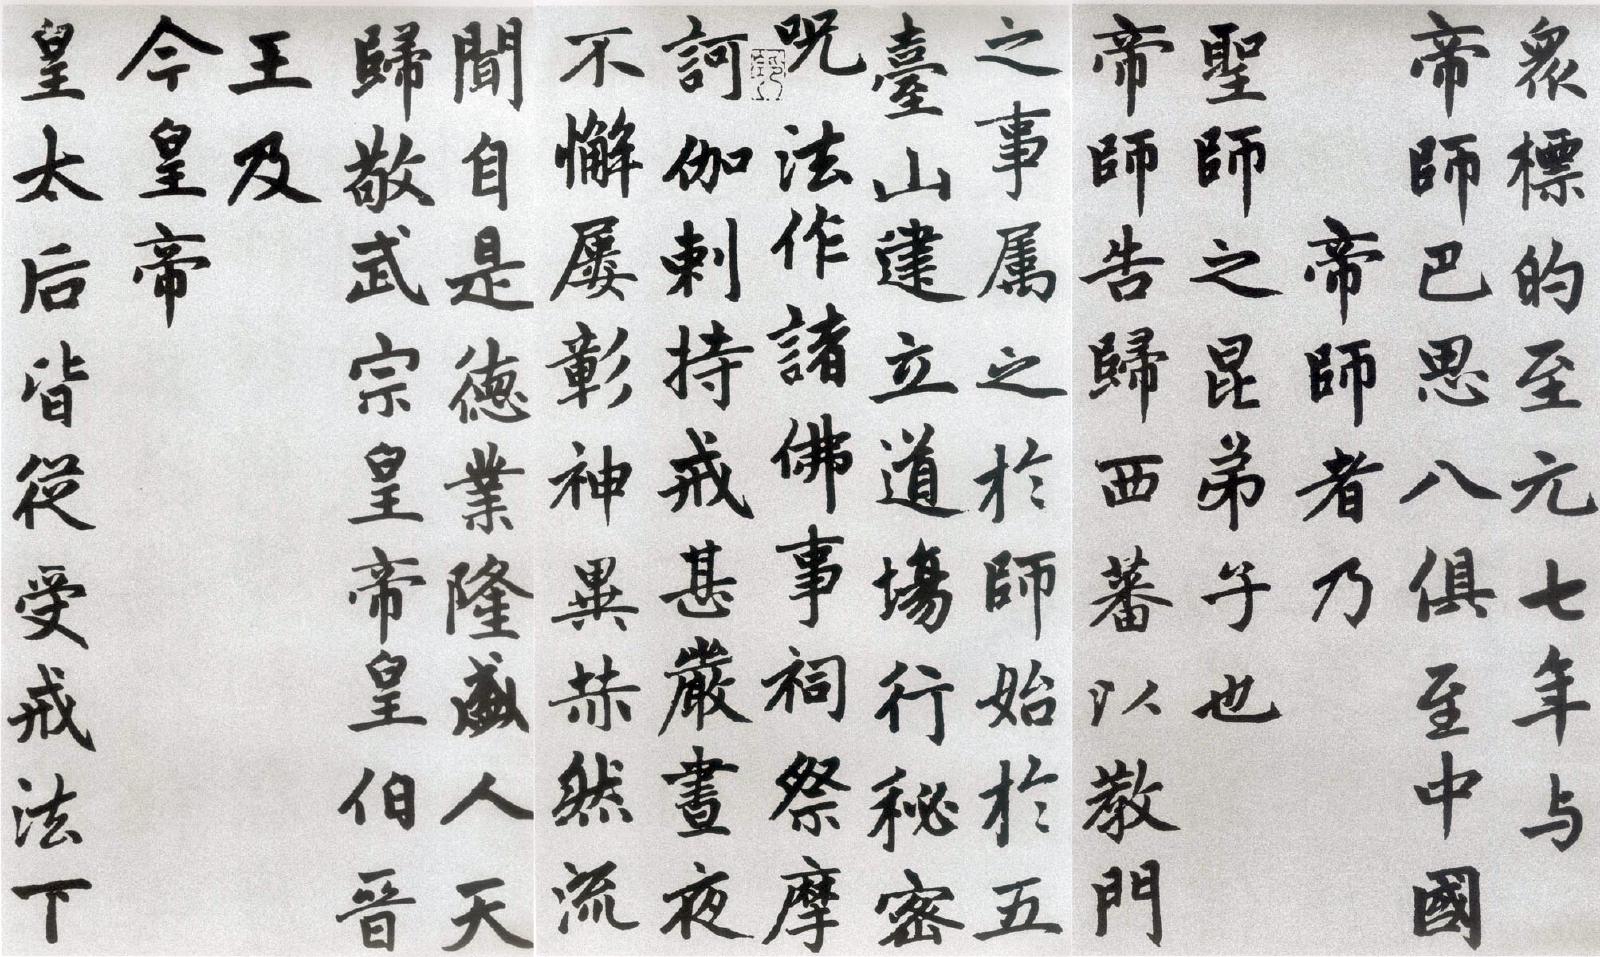 衆標的至元七年与
帝師巴思八俱至中國
帝師者乃
聖師之昆弟子也
帝師告歸西蕃以教門
之事属之於師始於五
臺山建立道場行秘密
呪法作諸佛事祠祭摩
訶伽剌持戒甚嚴晝夜
不懈屡彰神異赫然流
聞自是德業隆盛人天
歸敬武宗皇帝皇伯晉
王及
今皇帝
皇太后皆從受戒法下